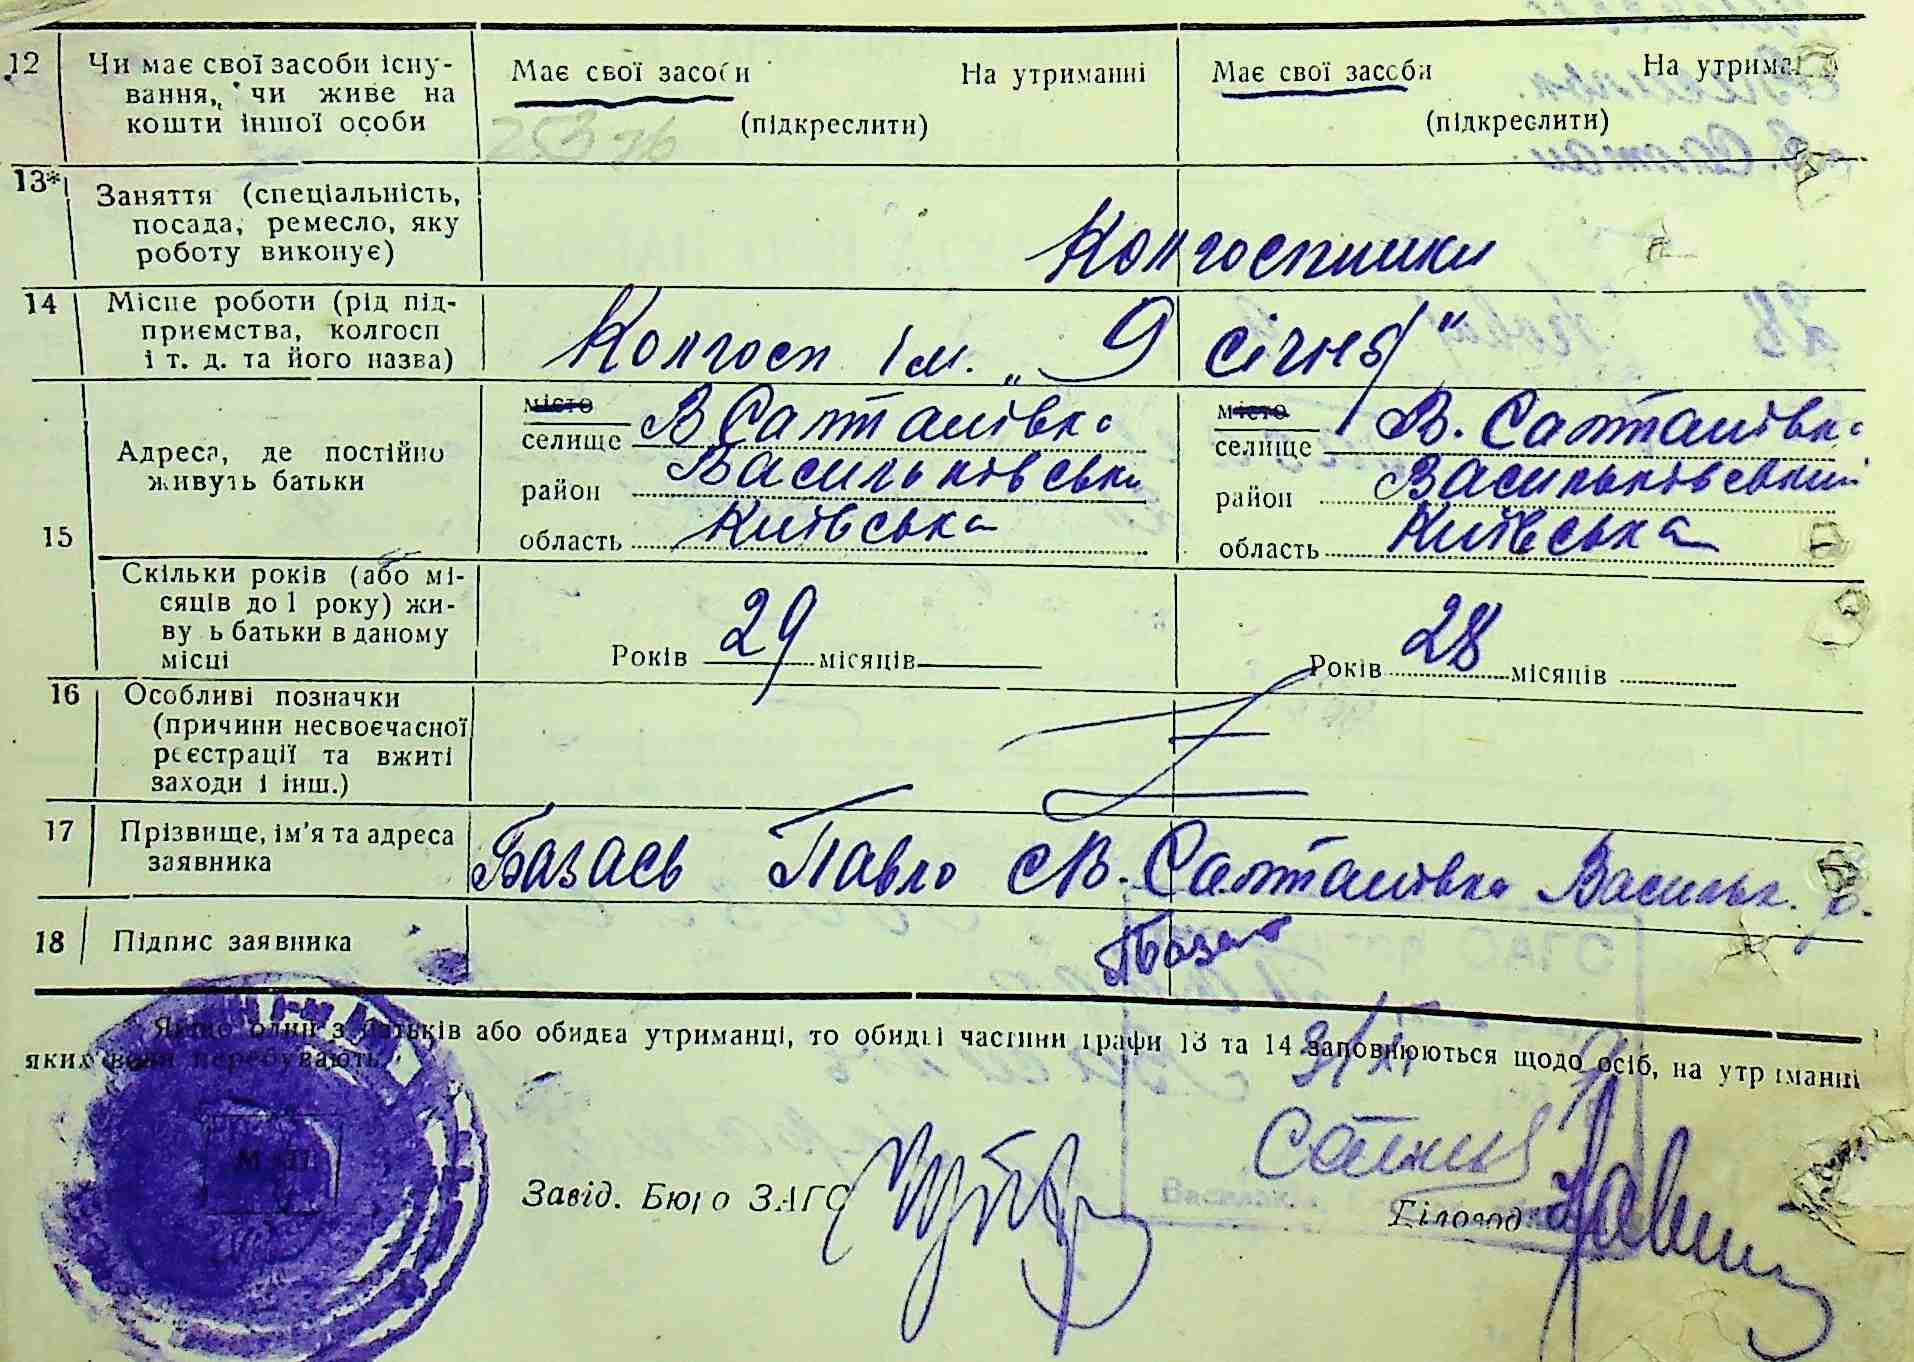 12 Чи має свої засоби існу-
вання, чи живе на
кошти іншої особи
Має свої засоби На утриманні
(підкреслити)
Має свої засоби На утрима
(підкреслити)
13* Заняття (спеціальність,
посада, ремесло, яку
роботу виконує)
Колгоспники
14 Місце роботи (рід під-
приємства, колгосп
і т. д. та його назва)
Колгосп ім. „9 січня"
15 Адреса, де постійно
живуть батьки
місто
селище В Салтанівка
район Васильківськи
область Київська
місто
селище В. Салтанівка
район Васильківський
область Київська
Скільки років (або мі-
сяців до 1 року) жи-
ву ь батьки в даному
місці
Років 29 місяців
Років 28 місяців
16 Особливі позначки
(причини несвоєчасної
реєстрації та вжиті
заходи і інш.)
17 Прізвище, ім'я та адреса
заявника
Базась Павло с В. Салтанівка Васильк.
18 Підпис заявника
Якщо один з батьків або обидва утриманці, то обидві частини графи 13 та 14 заповнюються щодо осіб, на утриманні
яких вони перебувають.
Завід. Бюро ЗАГС
Діловод